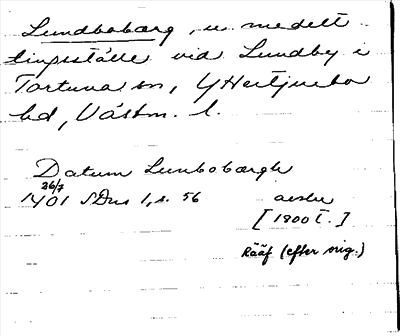 Lundbobærg, u. medelt
tingsställe vid Lundby i
Tortuna sn, Y Tjurbo
hd, Västm. l.
Datum Lunbobærgh
26/7
1401 SDns 1, s. 56 avskr
[1800 t.]
Rääf (efter orig.)